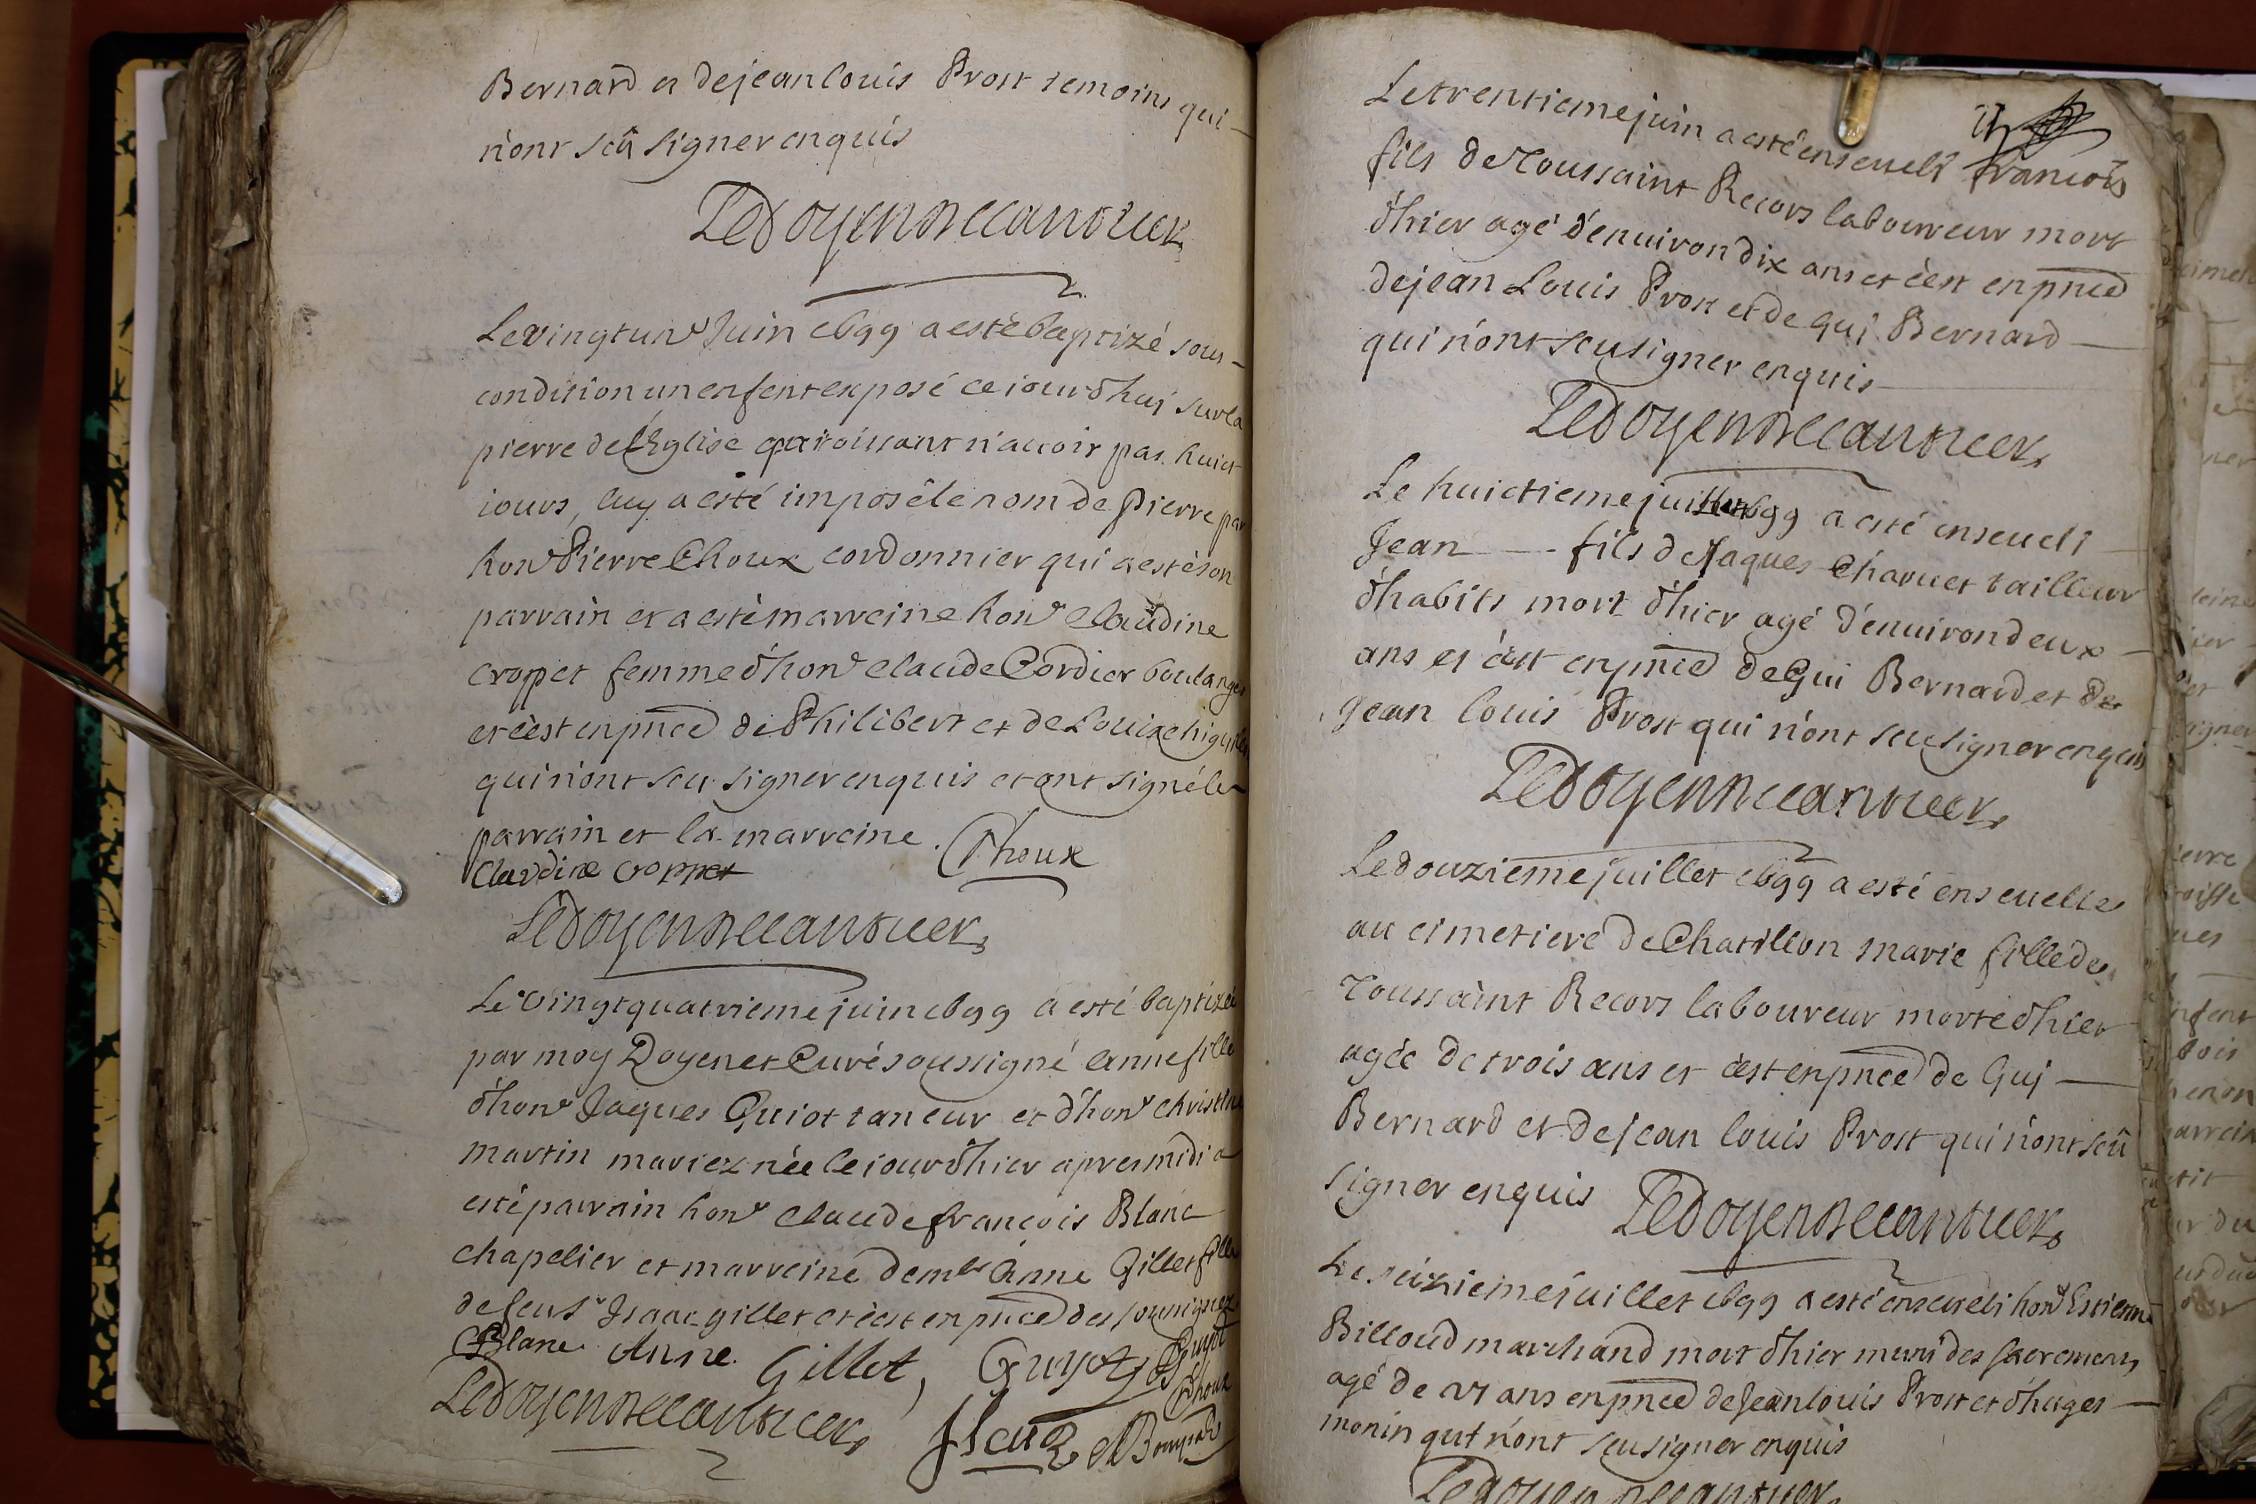 Bernard et de jean louis Prost temoins qui
n'ont sçû signer enquis
Le vingt un^e Juin 1699 a esté baptizé sous
condition un enfent exposé ce iour d'huj sur la
pierre de l'Eglise paroissant n'auoir pas huict
iours, luy a esté imposé le nom de Pierre par
hon^e Pierre Choux cordonnier qui a esté son
parrain et a esté marreine hon^e Claudine
Croppet femme d'hon^e Claude Cordier boulanger
et c'est en pnce de Philibert et de Louix
qui n'ont sceu signer enquis et ont signé le
parrain et la marreine. Choux
Claudine Croppet
Le vingt quatrieme juin 1699 a esté baptizée
par moy Doyen et Curé soussigné Anne fille
d'hon^e Jaques Guiot taneur et d'hon^e Christine
Martin mariez née le iour d'hier apres midi a
esté parrain hon^e Claude françois Blanc
chapelier et marreine dem^lle Anne Gillet fille
de feu s^r Isaac gillet et c'est en pnce des soussignez
CBlanc. Anne Gillet, Guyot
Choux
Le trentieme juin a esté enseueli francois
fils de Toussaint Recors laboureur mort
d'hier agé d'enuiron dix ans et c'est en pnce
de jean Louis Prost et de Guj Bernard
qui n'ont sceu signer enquis
Le huictieme juillet 1699 a esté enseueli
Jean fils de Jaques Charuet tailleur
d'habits mort d'hier agé d'enuiron deux
ans et c'est en pnce de Gui Bernard et de
Jean louis Prost qui n'ont sceu signer enquis
Le douzieme juillet 1699 a esté enseuelie
au cimetiere de Chatillon Marie fille de
Toussaint Recors laboureur morte d'hier
agée de trois ans et c'est en pnce de Guj
Bernard et de jean louis Prost qui n'ont sceû
signer enquis
Le seizieme juillet 1699 a esté enseueli hon^e Estienne
Billoud marchand mort d'hier muni des sacremens
agé de ans en pnce de Jean louis Prost et d'huges
monin qui n'ont sceu signer enquis